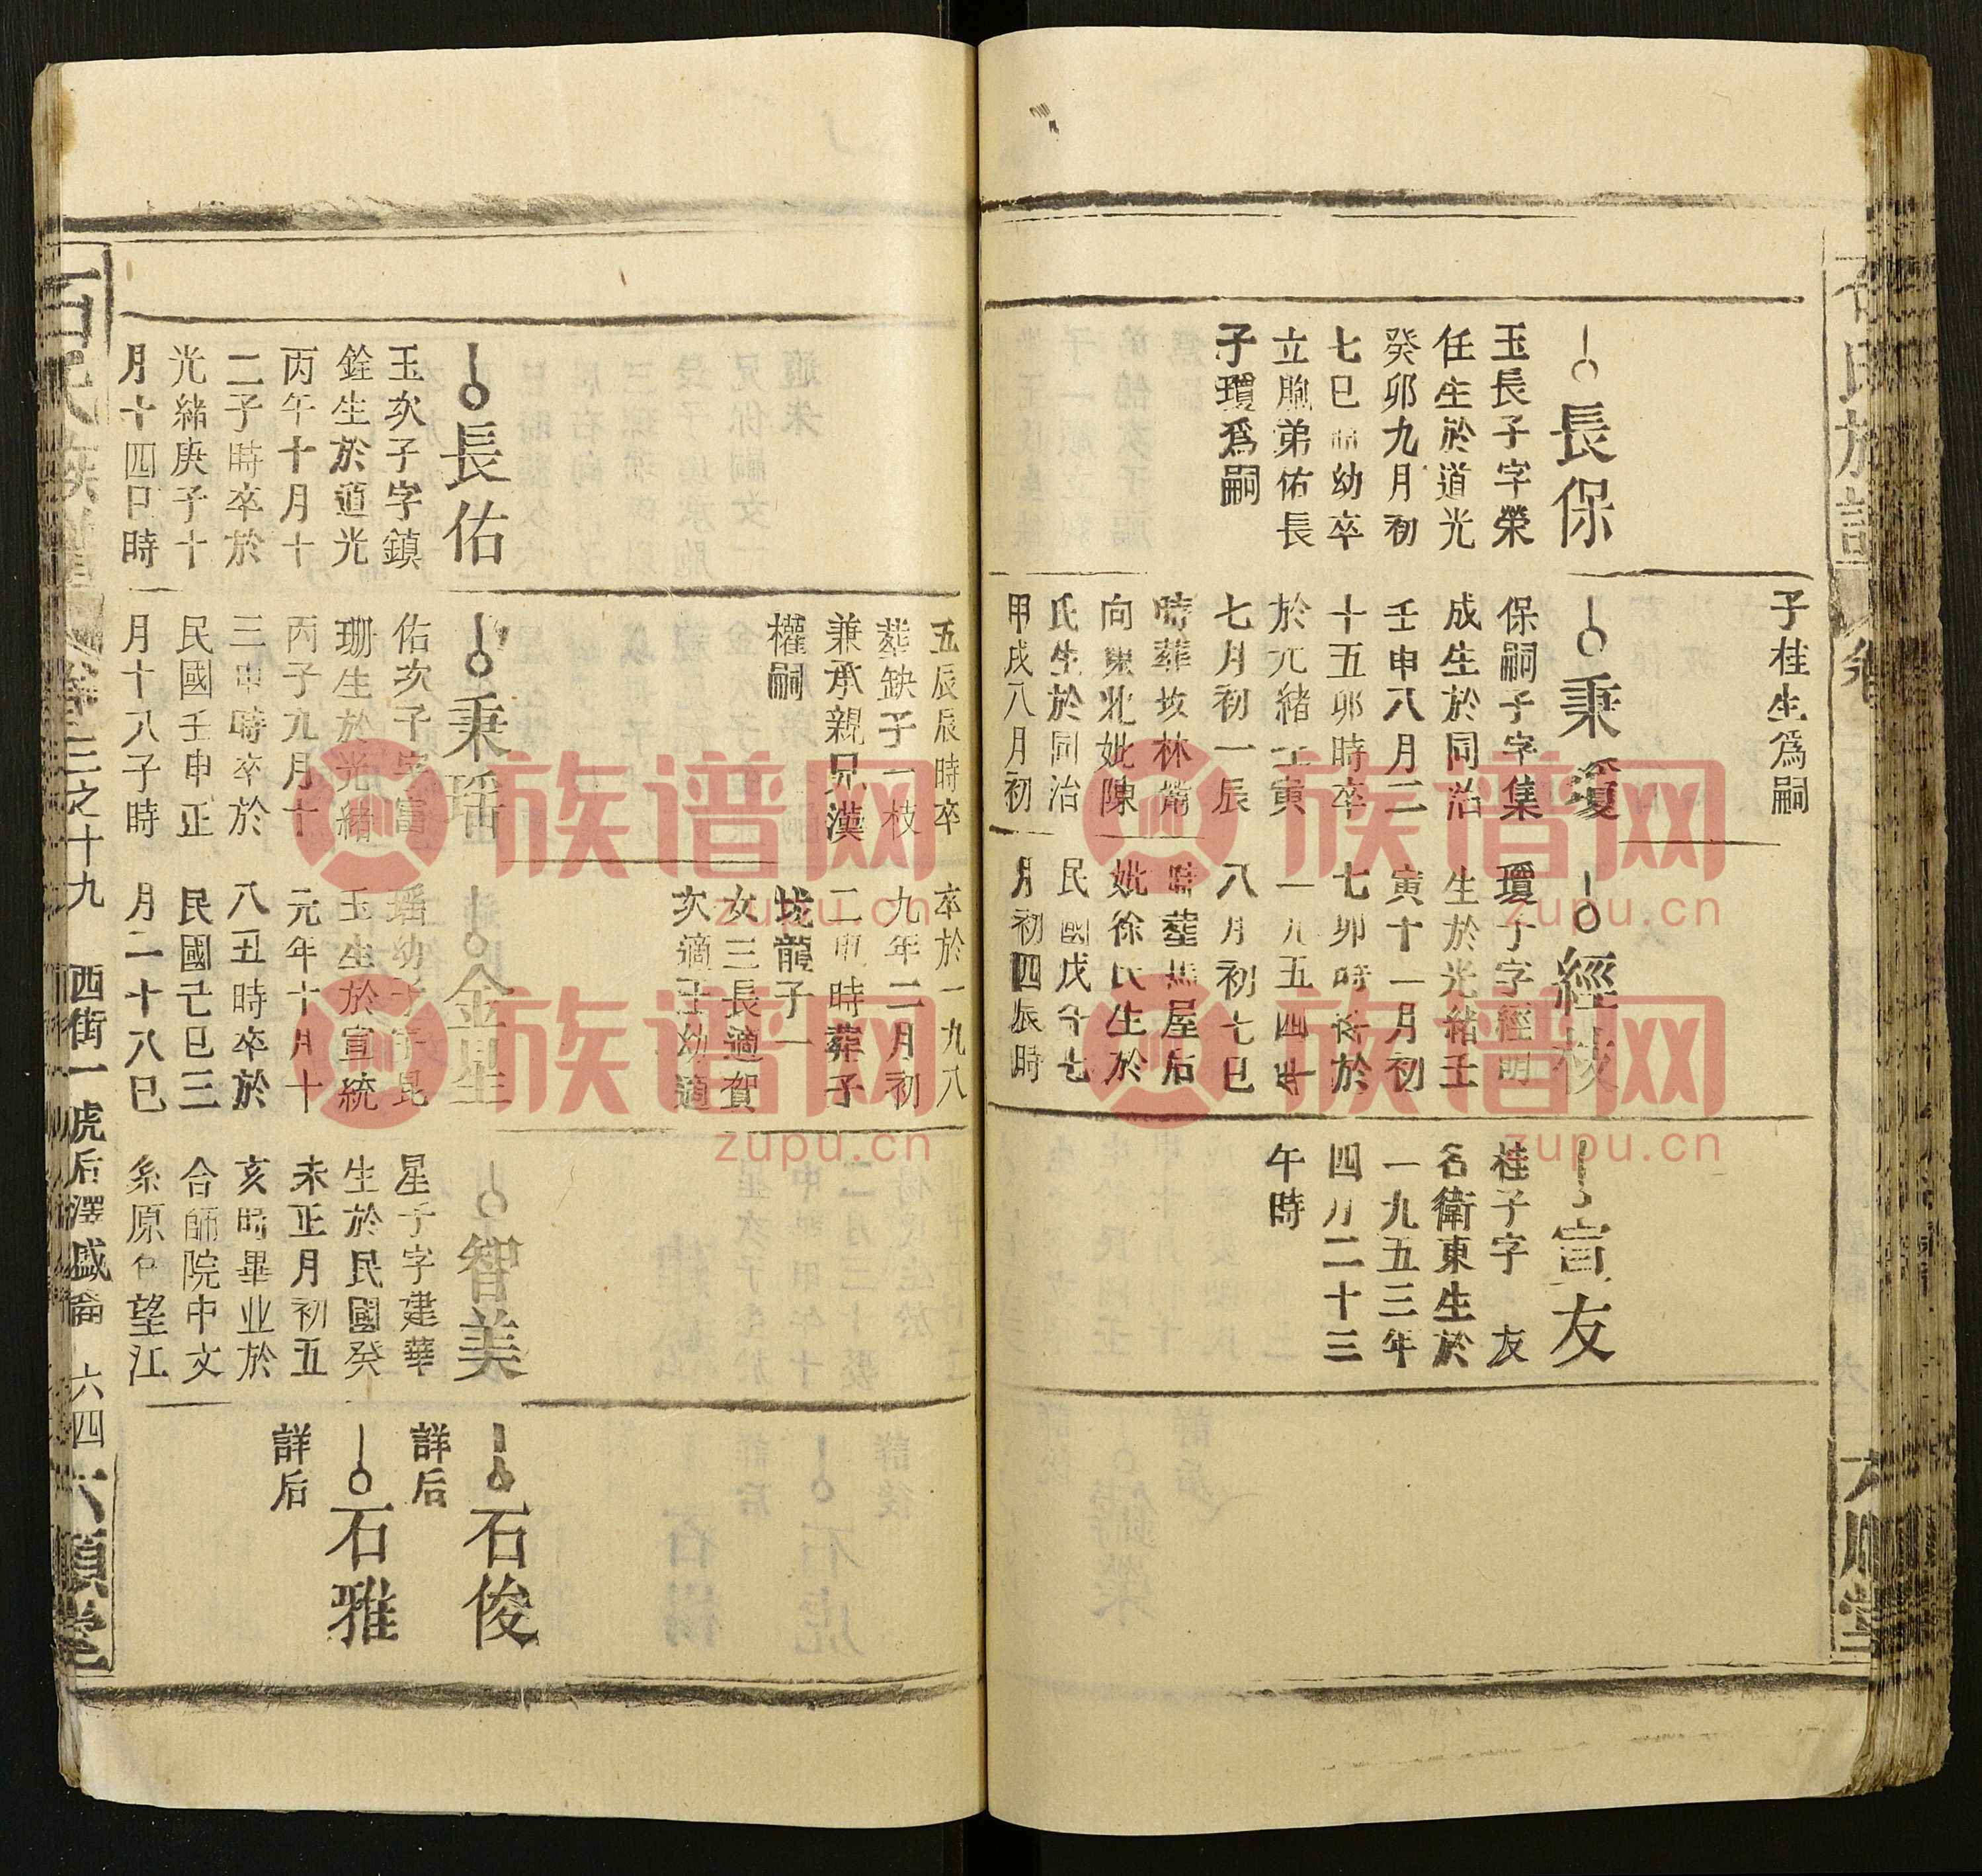 石氏族譜
卷
六順堂
子桂生為嗣
長保
玉長子字榮
任生於道光
癸卯九月初
七巳時幼卒
立胞弟佑長
子瓊為嗣
秉瓊
保嗣子字集
成生於同治
壬申八月二
十五卯時卒
於光緒壬寅
七月初一辰
時葬坟林
向東北妣陳
氏生於同治
甲戌八月初
五辰辰時卒
葬缺子一枝
兼承親兄漢
權嗣
經枝
瓊子字經明
生於光緒壬
寅十一月初
七卯時 於
一九五四年
八月初七巳
時葬 屋后
妣徐氏生於
民國戊午七
月初四辰時
卒於一九八
九年二月初
二 時葬子
垅龍子一
女三長適賀
次適王幼適
宣友
桂子字 友
名衛東生於
一九五三年
四月二十三
午時
長佑
玉次子字鎮
銓生於道光
丙午十月十
二子時卒於
光緒庚子十
月十四巳時
秉瑶
佑次子字富
珊生於光緒
丙子九月十
三申時卒於
民國壬申正
月十八子時
金星
瑶幼子字昆
玉生於宣統
元年十月十
八丑時卒於
民國己巳三
月二十八巳
智美
星子字建華
生於民國癸
未正月初五
亥時畢业於
合師院中文
系原 望江
石俊
詳后
石雅
詳后
石氏族譜
卷三之十九
西街一虎后澤盛 六四
六順堂
族谱网
zupu.cn
族谱网
zupu.cn
族谱网
zupu.cn
族谱网
zupu.cn